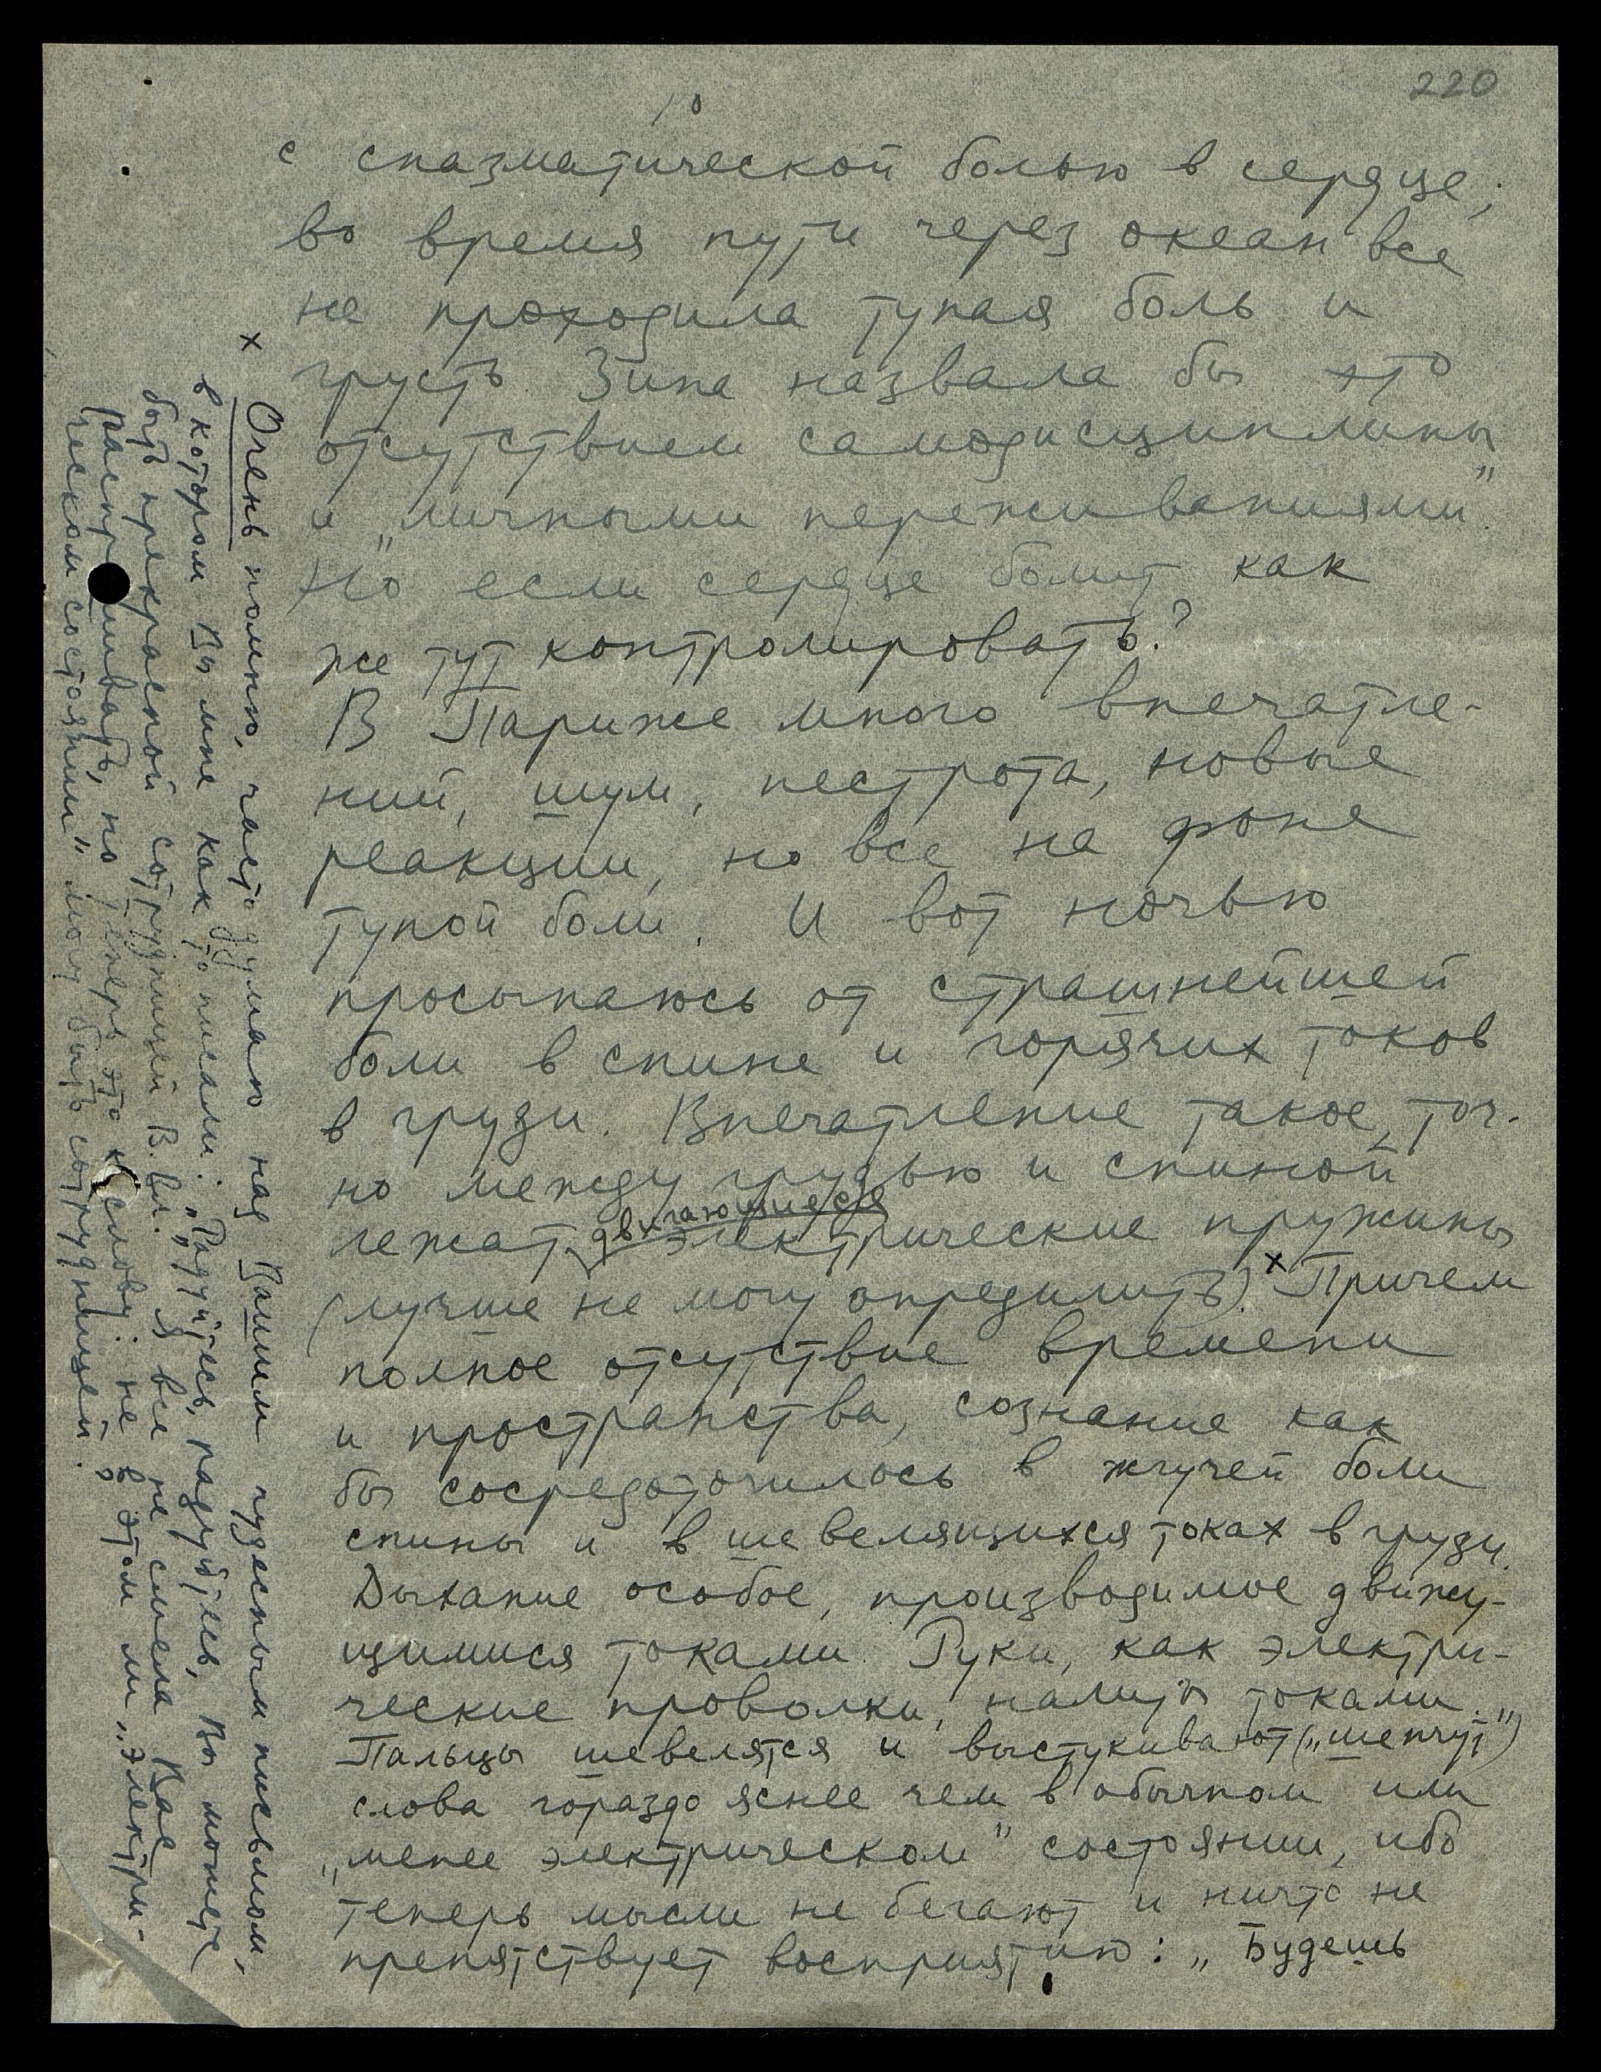 220
10
с спазматической болью в сердце;
во время пути через океан все
не проходила тупая боль и
грусть. Зина назвала бы это
отсутствием самодисциплины
и „личными переживаниями".
Но если сердце болит как
же тут контролировать?
В Париже много впечатле-
ний, шум, пестрота, новые
реакции, но все на фоне
тупой боли. И вот ночью
просыпаюсь от страшнейшей
боли в спине и горячих токов
в груди. Впечатление такое, точ-
но между грудью и спиной
двигающиеся
лежат электрические пружины
(лучше не могу определить).x Причем
полное отсутствие времени
и пространства, сознание как
бы сосредоточилось в жгучей боли
спины и в шевелящихся токах в груди.
Дыхание особое, производимое движу-
щимися токами. Руки, как электри-
ческие проволки, налиты токами.
Пальцы шевелятся и выстукивают („шепчут")
слова гораздо яснее чем в обычном или
„менее электрическом" состоянии, ибо
теперь мысли не бегают и ничто не
препятствует восприятию: „Будешь
x Очень помню, часто думаю над Вашим чудесным письмом,
в котором Вы мне как то писали: „Радуйтесь, радуйтесь, Вы можете
быть прекрасной сотрудницей В. Вл." Я все не смела Вас
расспрашивать, но теперь это к слову: не в этом ли „электри-
ческом состоянии" могу быть сотрудницей?